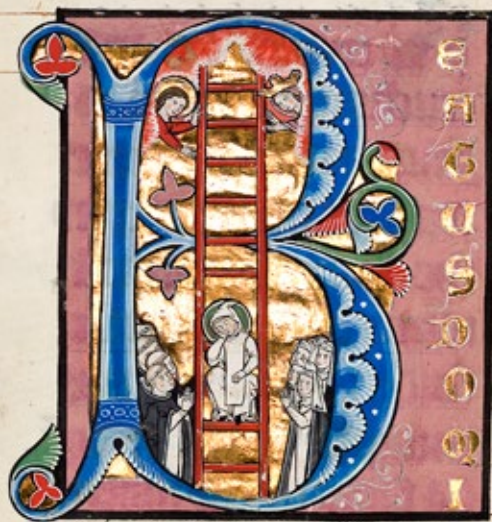 B
E
A
T
U
S
D
O
Q
I